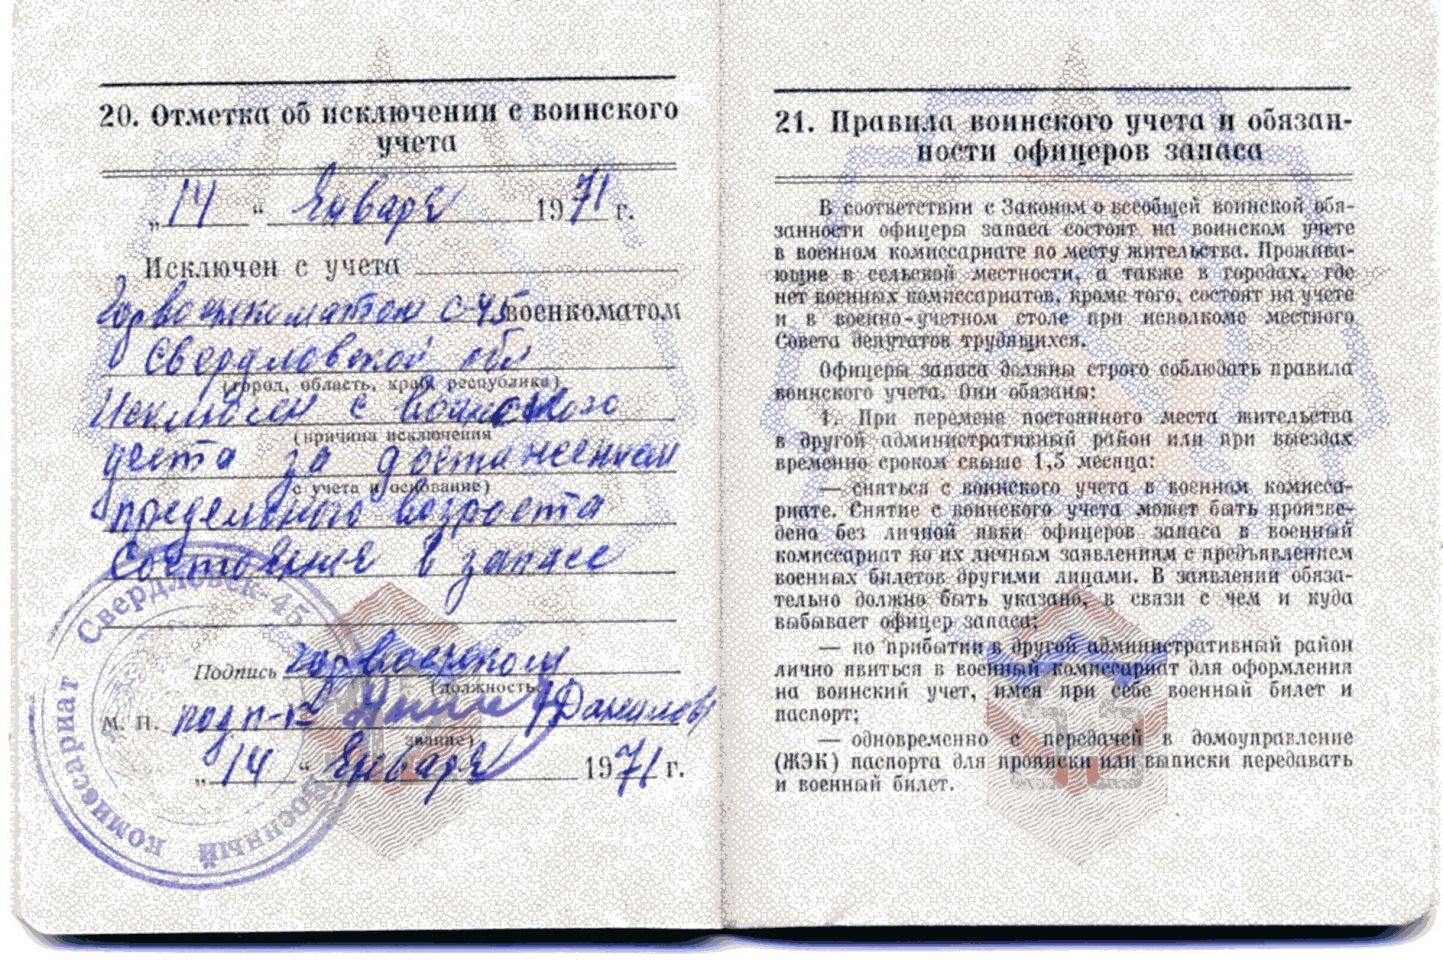 20. Отметка об исключении с воинского
учета
„14“ Января 1971 г.
Исключен с учета
Горвоенкоматом С-45 военкоматом
Свердловской обл
(город, область, край, республика)
Исключен с воинского
(причина исключения
учета за достижением
с учета и основание)
предельного возроста
состояния в запасе
Подпись Горвоенком
(должность,
М. П. подп-к Данилов
звание)
„14“ Января 1971 г.
Свердловск-45
военный комиссариат
21. Правила воинского учета и обязан-
ности офицеров запаса
В соответствии с Законом о всеобщей воинской обя-
занности офицеры запаса состоят на воинском учете
в военном комиссариате по месту жительства. Прожива-
ющие в сельской местности, а также в городах, где
нет военных комиссариатов, кроме того, состоят на учете
и в военно-учетном столе при исполкоме местного
Совета депутатов трудящихся.
Офицеры запаса должны строго соблюдать правила
воинского учета. Они обязаны:
1. При перемене постоянного места жительства
в другой административный район или при выездах
временно сроком свыше 1,5 месяца:
— сняться с воинского учета в военном комисса-
риате. Снятие с воинского учета может быть произве-
дено без личной явки офицеров запаса в военный
комиссариат по их личным заявлениям с предъявлением
военных билетов другими лицами. В заявлении обяза-
тельно должно быть указано, в связи с чем и куда
выбывает офицер запаса;
— по прибытии в другой административный район
лично явиться в военный комиссариат для оформления
на воинский учет, имея при себе военный билет и
паспорт;
— одновременно с передачей в домоуправление
(ЖЭК) паспорта для прописки или выписки передавать
и военный билет.